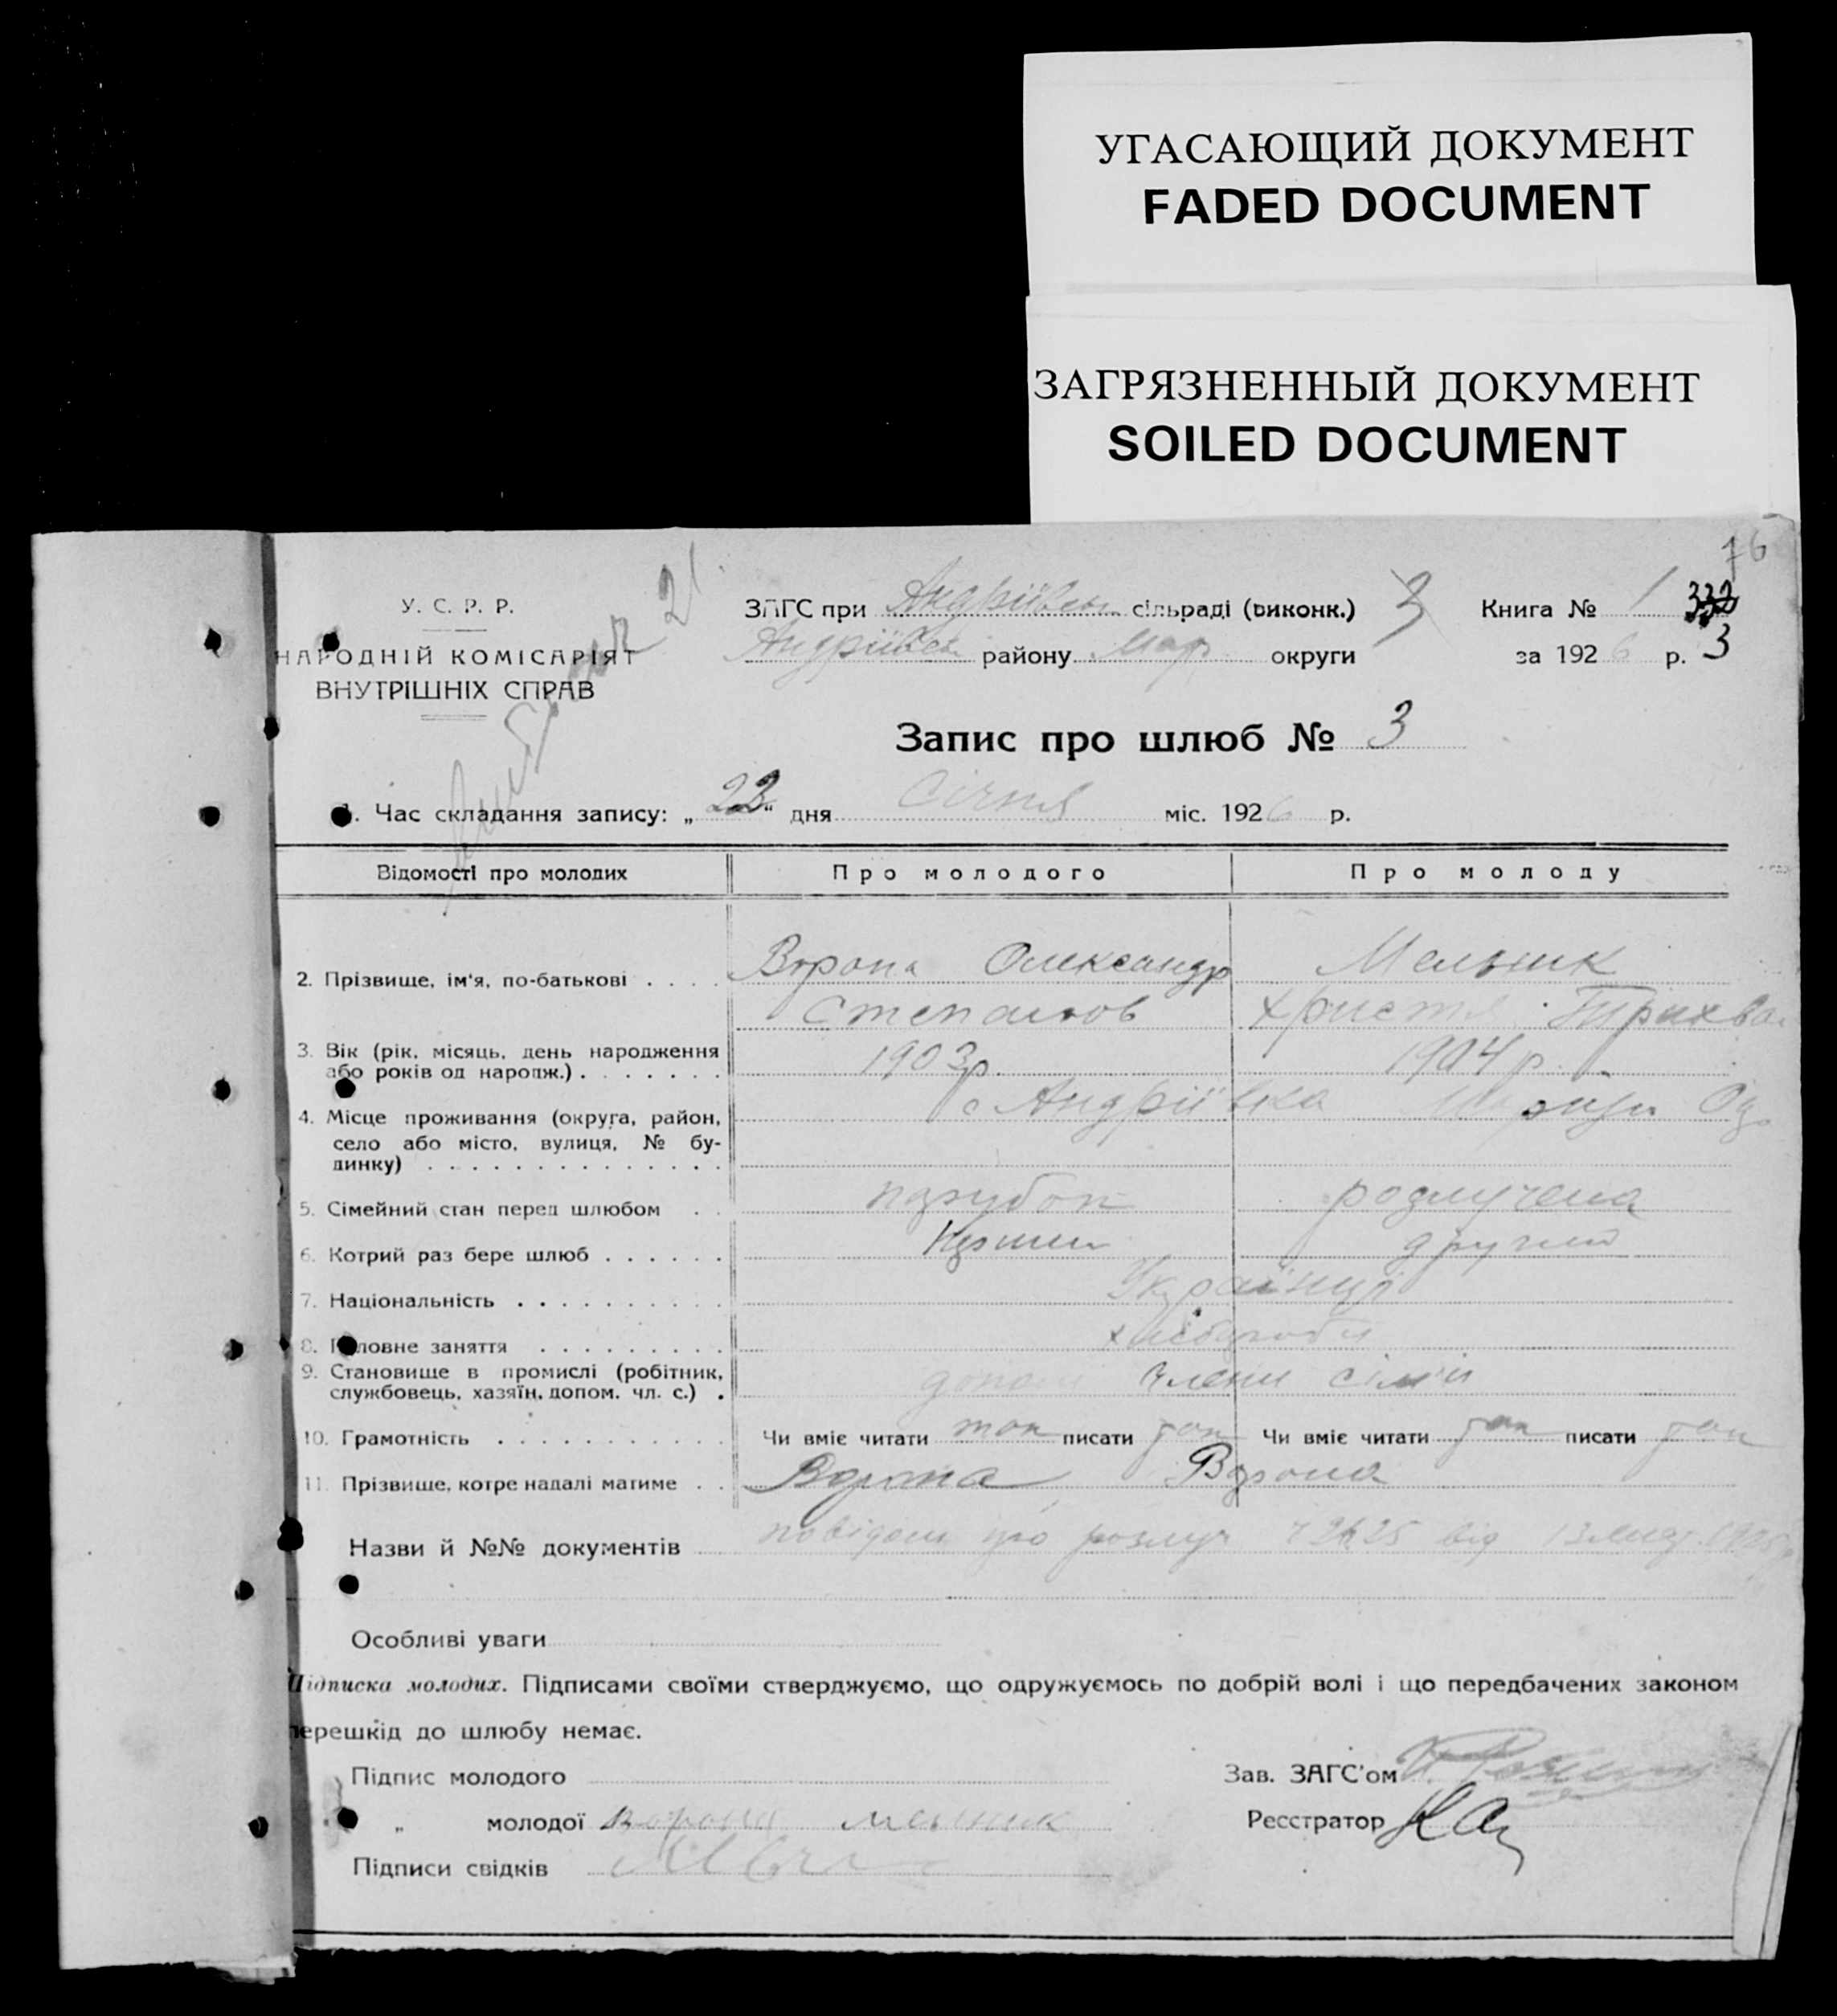 УГАСАЮЩИЙ ДОКУМЕНТ
FADED DOCUMENT
ЗАГРЯЗНЕННЫЙ ДОКУМЕНТ
SOILED DOCUMENT
У. С. Р. Р.
НАРОДНІЙ КОМІСАРІЯТ
ВНУТРІШНІХ СПРАВ
21
ЗАГС при Андріївськ сільраді (виконк.) 3
Андріївськ району Мар округи
Книга № 1
за 1926 р. 3
Запис про шлюб № 3
1. Час складання запису: „22" дня Січня міс. 1926 р.
Відомості про молодих Про молодого Про молоду
2. Прізвище, ім'я, по-батькові Ворона Олександр Мельник
Степанов Христя
3. Вік (рік, місяць, день народження або років од народж.) 1903р. 1904 р.
4. Місце проживання (округа, район, село або місто, вулиця, № будинку) с Андріївка
5. Сімейний стан перед шлюбом парубок розлучена
6. Котрий раз бере шлюб Перший другий
7. Національність Українці
8. Головне заняття хлібороби
9. Становище в промислі (робітник, службовець, хазяїн, допом. чл. с.) допом члени сім'ї
10. Грамотність Чи вміє читати так писати так Чи вміє читати так писати так
11. Прізвище, котре надалі матиме Ворона Ворона
Назви й №№ документів повідом про розлуч від 13
Особливі уваги
Підписка молодих. Підписами своїми стверджуємо, що одружуємось по добрій волі і що передбачених законом
перешкід до шлюбу немає.
Підпис молодого
„ молодої Ворона Мельник
Підписи свідків
Зав. ЗАГС'ом
Реєстратор